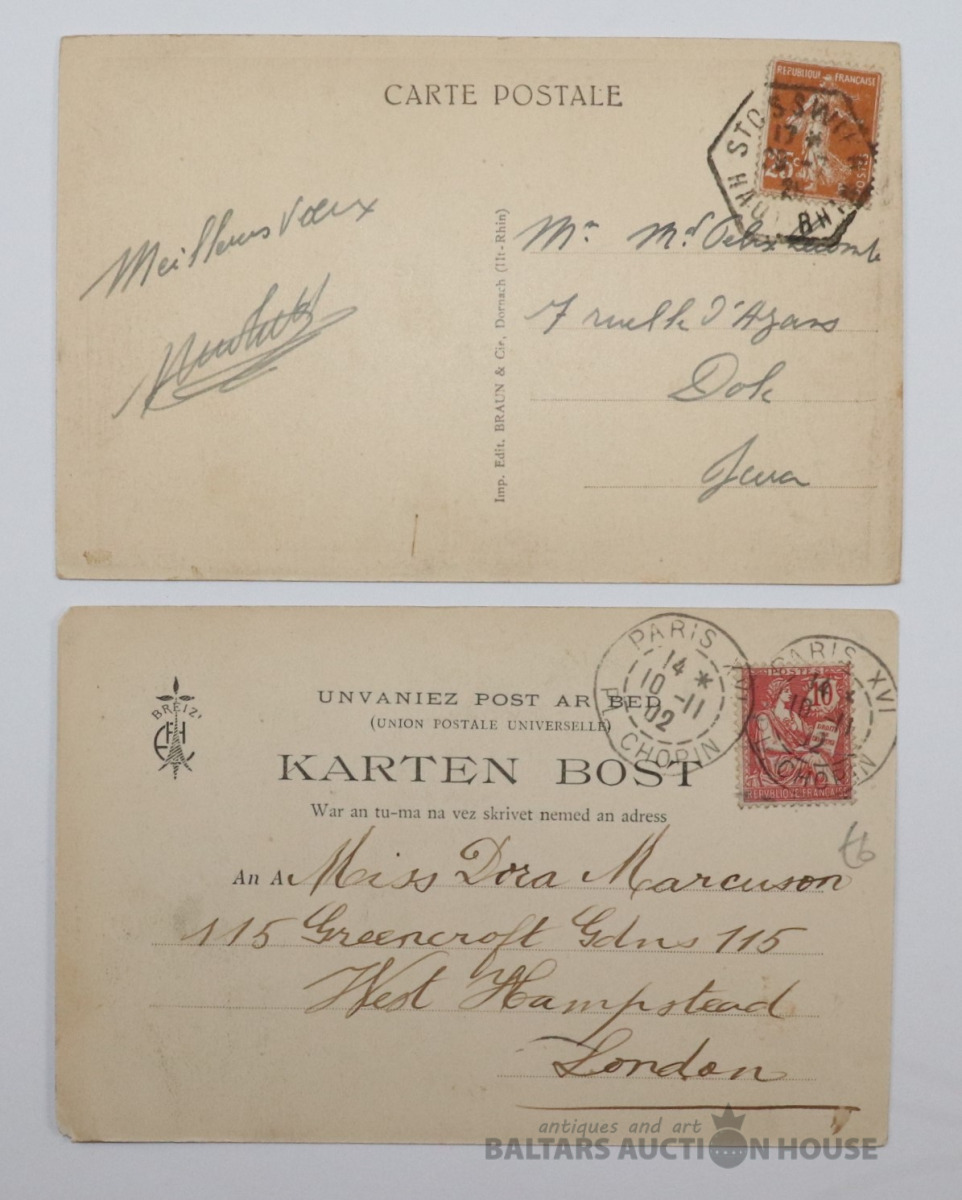 CARTE POSTALE
REPUBLIQUE FRANÇAISE
25c
POSTES
17 *
HAUT RHIN
Meilleurs vœux
Mr Md Félix Lecomte
7 ruelle d'Azans
Dole
Jura
Imp. Edit. BRAUN & Cie, Dornach (Ht-Rhin)
BREIZ'
UNVANIEZ POST AR BED
(UNION POSTALE UNIVERSELLE)
KARTEN BOST
War an tu-ma na vez skrivet nemed an adress
PARIS XVI
14 *
10 -11
02
PL. CHOPIN
PARIS XVI
POSTES
10
REPVBLIQVE FRANÇAISE
£6
An A
Miss Dora Marcuson
115 Greencroft Gdns 115
West Hampstead
London
antiques and art
BALTARS AUCTION HOUSE